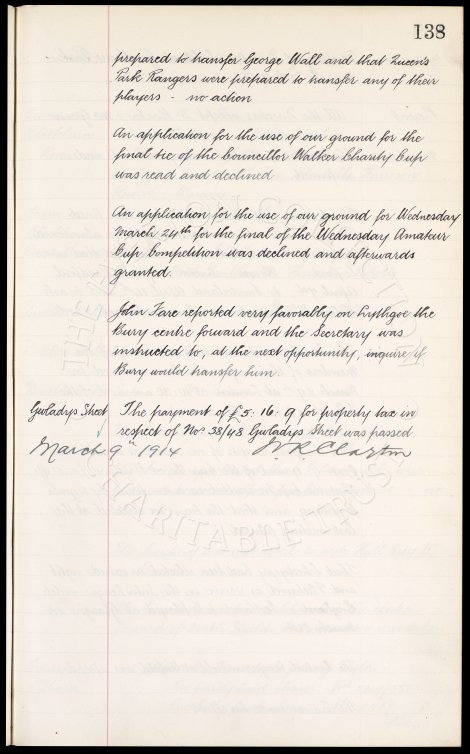 138
prepared to transfer George Wall and that Queen's
Park Rangers were prepared to transfer any of their
players - no action
An application for the use of our ground for the
final tie of the Councillor Walker Charity Cup
was read and declined
An application for the use of our ground for Wednesday
March 24th for the final of the Wednesday Amateur
Cup Competition was declined and afterwards
granted.
John Fare reported very favorably on Lythgoe the
Bury centre forward and the Secretary was
instructed to, at the next opportunity, inquire if
Bury would transfer him.
Gwladys Street The payment of £5:16:9 for property tax in
respect of Nos 38/48 Gwladys Street was passed
March 9th 1914 W R Clayton
CHARITABLE TRUST